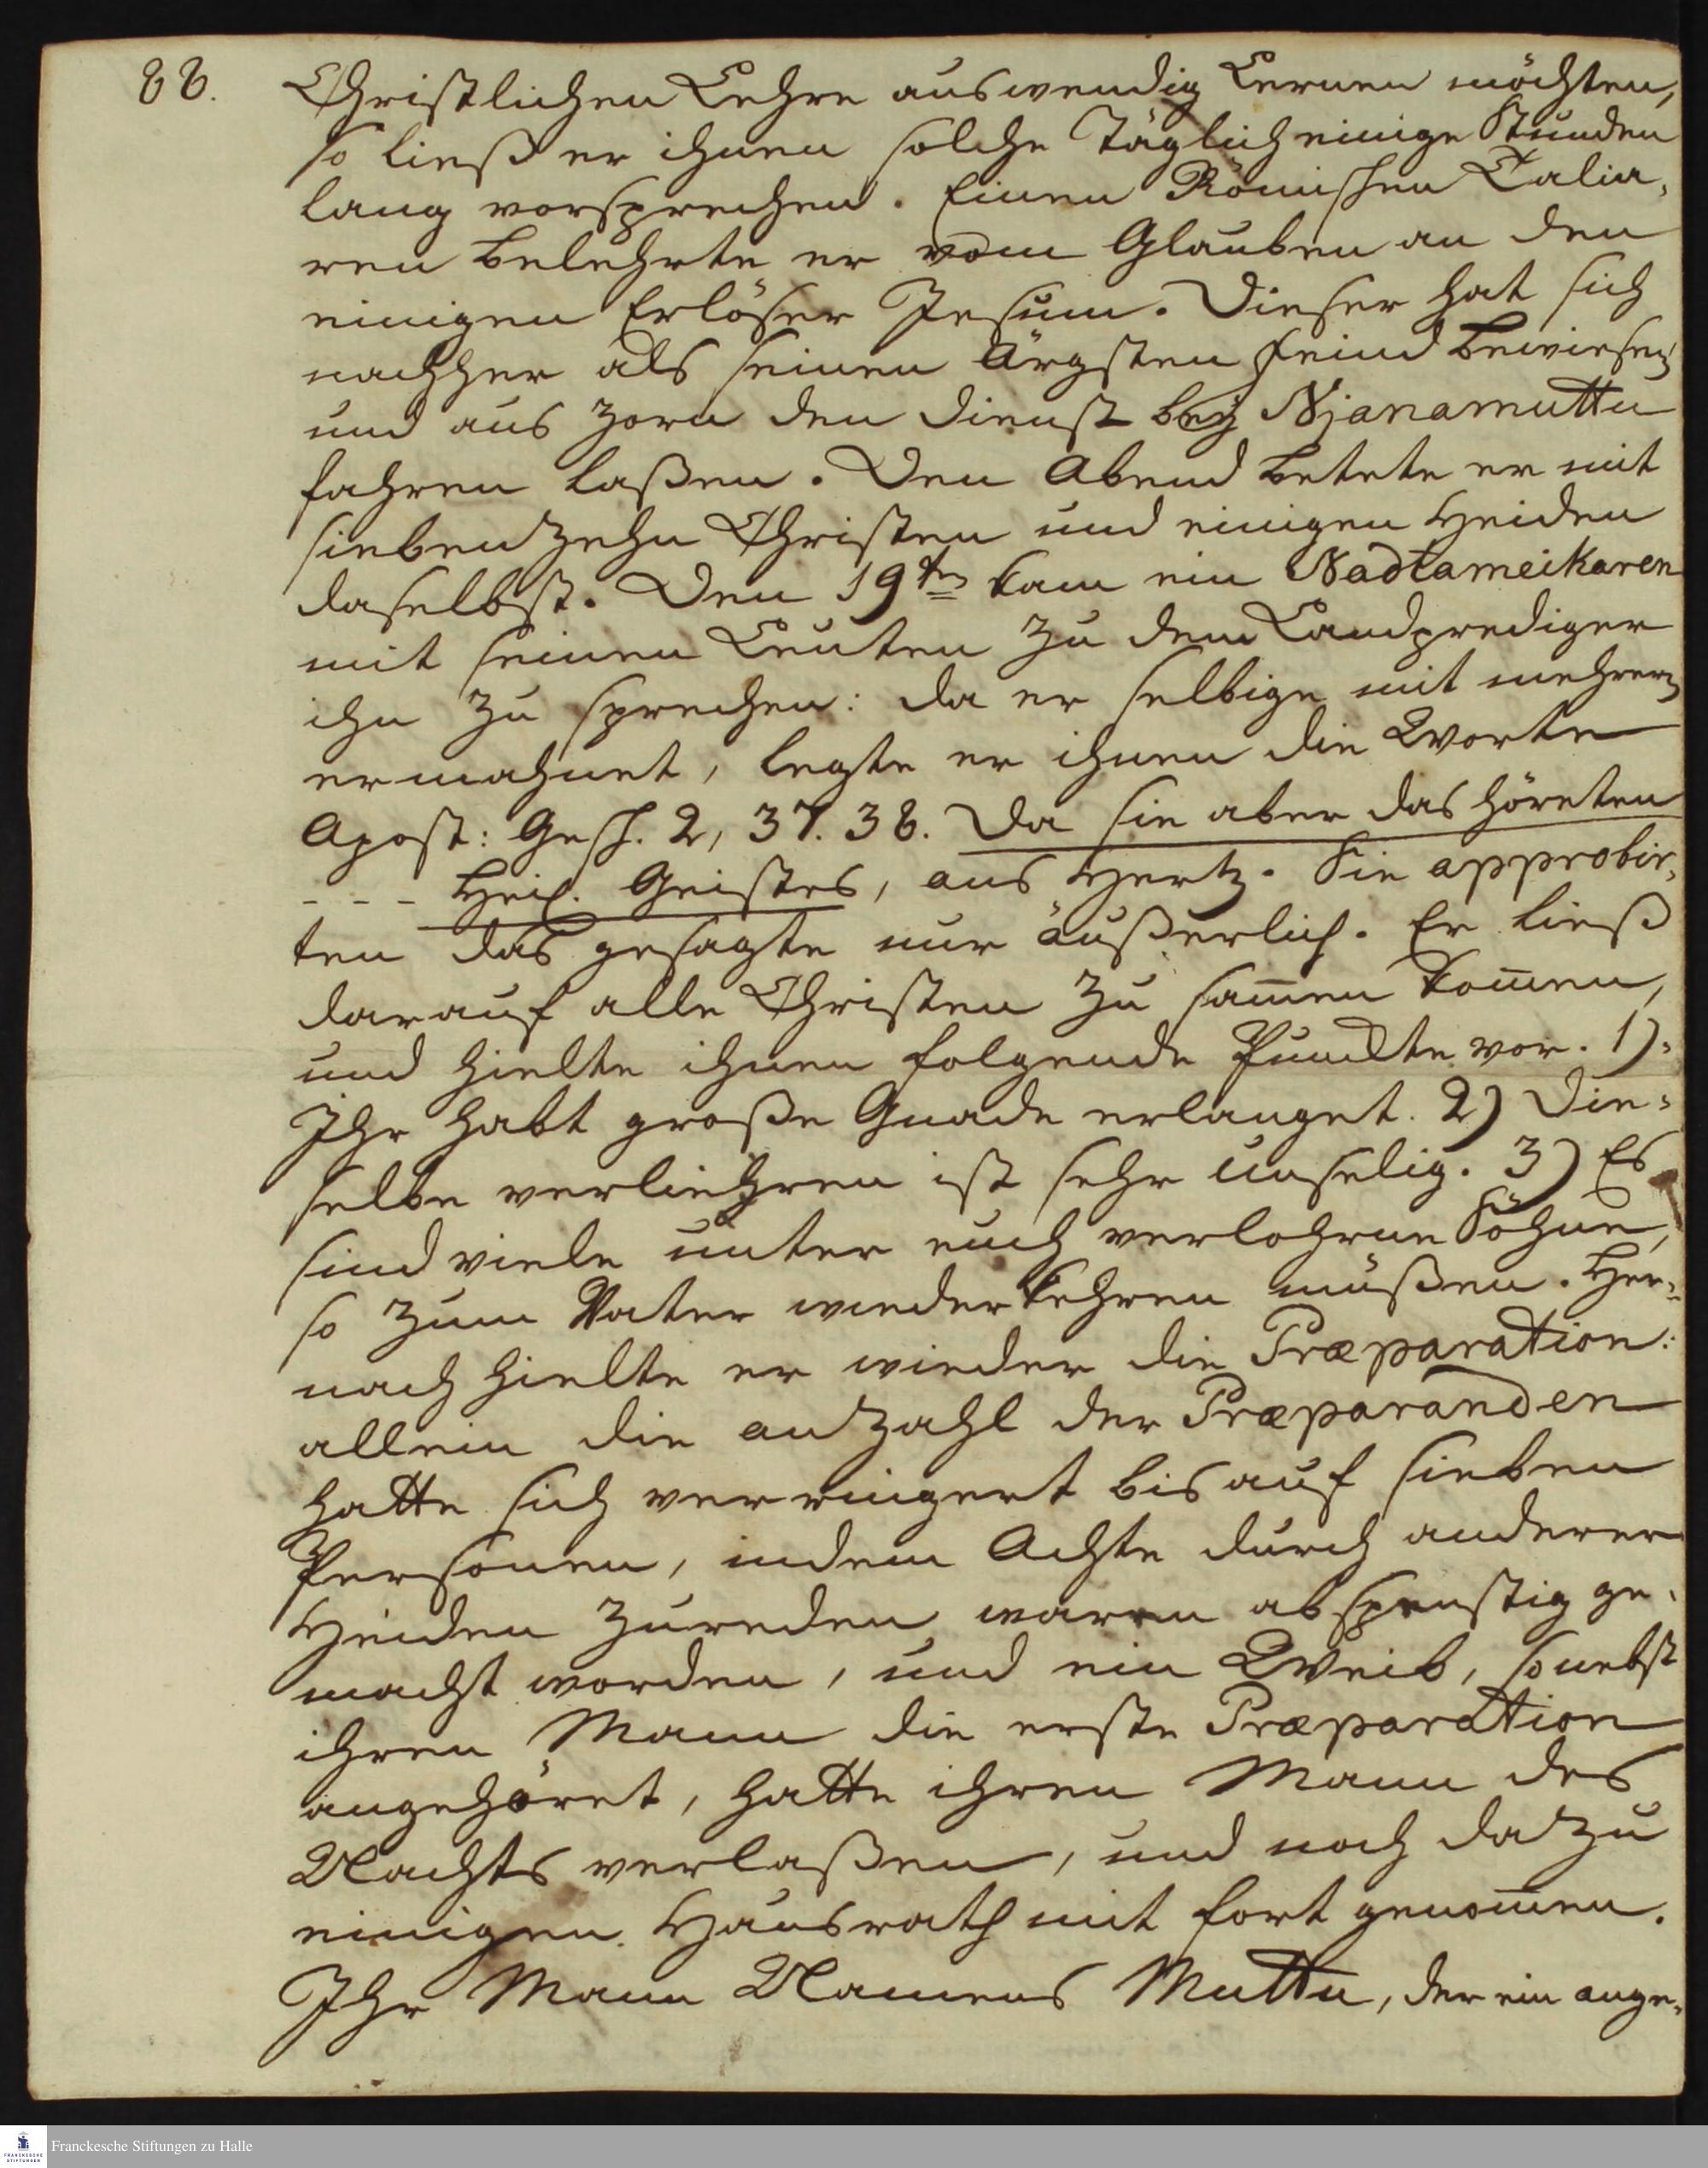 88.
Christlichen Lehre auswendig Lernen möchten,
so ließ er ihnen solche Täglich einige Stunden
lang vorsprechen. Einen Römischen Talia,
ren belehrte er vom Glauben an den
einigen Erlöser Jesum. Dieser hat sich
nachher als seinen Ärgsten Feind bewiesen
und aus Zorn den Dienst bey Njanamuttu
fahren laßen. Den Abend betete er mit
siebenzehn Christen und einigen Heiden
daselbst. Den 19ten kam ein Nadtameikaren
mit seinen Leuten zu dem Landprediger
ihn zu sprechen: da er selbige mit mehrern
ermahnet, legte er ihnen die Worte
Apost: Gesch. 2, 37. 38. Da sie aber das höreten
- - - Heil. Geistes, ans Hertz. Sie approbir,
ten das gesagte nur äußerlich. Er ließ
darauf alle Christen zu sam̄en kom̄en,
und hielte ihnen folgende Punckte vor. 1).
Ihr habt große Gnade erlanget. 2) Die=
selbe verliehren ist sehr unselig. 3) Es
sind viele unter euch verlohrne Söhne,
so zum Vater wiederkehren müßen. Her=
nach hielte er wieder die Præparation:
allein die anzahl der Præparanden
hatte sich verringert bis auf sieben
Personen, indem Achte durch anderer
Heiden zureden waren abspenstig ge,
macht worden, und ein Weib, so nebst
ihren Mann die erste Præparation
angehöret, hatte ihren Mann des
Nachts verlaßen, und noch dazu
einigen Hausrath mit fort genom̄en.
Ihr Mann Namens Muttu, der ein ange,
Franckesche Stiftungen zu Halle